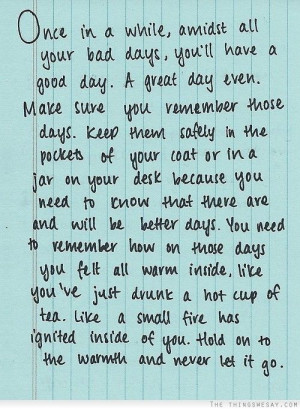 Once in a while, amidst all
your bad days, you'll have a
good day. A great day even.
Make sure you remember those
days. Keep them safely in the
pockets of your coat or in a
jar on your desk because you
need to know that there are
and will be better days. You need
to remember how on those days
you felt all warm inside, like
you've just drunk a hot cup of
tea. Like a small fire has
ignited inside of you. Hold on to
the warmth and never let it go.
THETHINGSWESAY.COM